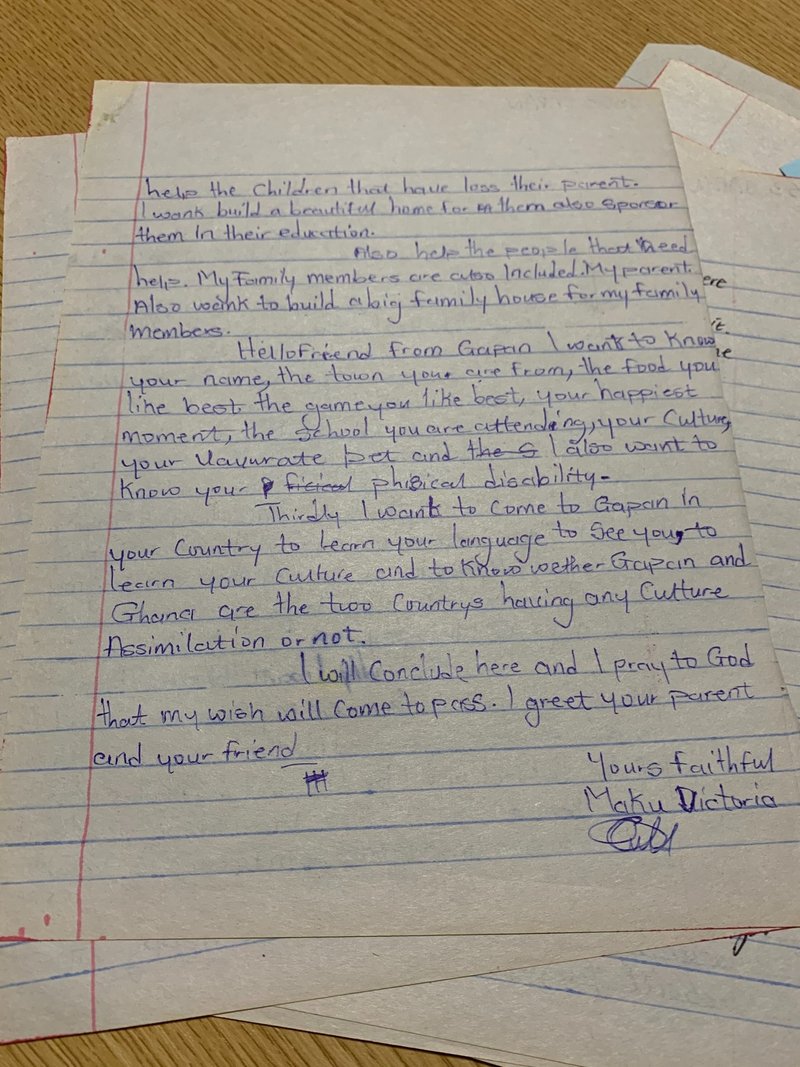 help the children that have loss their parent.
I want build a beautiful home for them also sponsor
them In their education.
Also help the people that need
help. My Family members are also Included. My parent.
Also want to build a big family house for my family
members.
Hello Friend from Gapan I want to Know
your name, the town your are from, the food you
like best, the game you like best, your happiest
moment, the school you are attending, your Culture,
your Vavurate pet and the s I also want to
Know your phisical disability-
Thirdly I want to come to Gapan In
your Country to Learn your language to see you, to
learn your Culture and to Know wether Gapan and
Ghana are the two Countrys having any Culture
Assimilation or not.
I will Conclude here and I pray to God
that my wish will Come to pass. I greet your parent
and your friend
Yours Faithful
Maku Victoria
ere